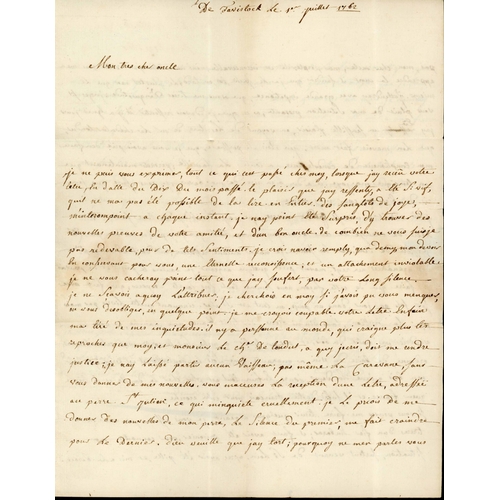 De Tavistock Le 1er juillet 1762
Mon tres cher oncle
je ne puis vous exprimer, tout ce qui c'est passé chez moy, lorsque jay reçeu votre
letre, la datte du Dix du mois passé. le plaisir que jay ressenty, a été si vif,
quil ne mas pas été possible de la lire en Entier, des sanglots de joye,
minterrompoint a chaque instant. je nay point été surpris, dy trouver des
nouvelles preuves de votre amitié, et d'un bon oncle. de combien ne vous suis je
pas redevable, pour de tels sentiments. je crois navoir remply, que demy mon devoir
En conservant pour vous, une Eternelle reconnoissence, et un attachement inviolable
je ne vous cacheray pas tout ce que jay soufert, par votre Long silence,
je ne sçavois aquoy L'attribuer, je cherchois en moy si j'avois pu vous manquer,
ou vous desobliger, en quelque point. je me croyois coupable votre Letre Enfin
ma tiré de mes inquietudes. il ny a personne au monde, qui craigne plus les
reproches que moy, et monsieur Le chr. de , a quy jecris, doit me rendre
justice; je nay laissé partir aucun Vaisseau, pas même La Caravane, sans
vous donner de mes nouvelles. vous maccusés La reception d'une Letre, adressée
au pere St , ce qui minquiete cruellement; je Le priois de me
donner des nouvelles de mon pere, Le silence du premier, me fait craindre
pour Le Dernier. dieu veuille que jay tort; pourquoy ne men parlés vous